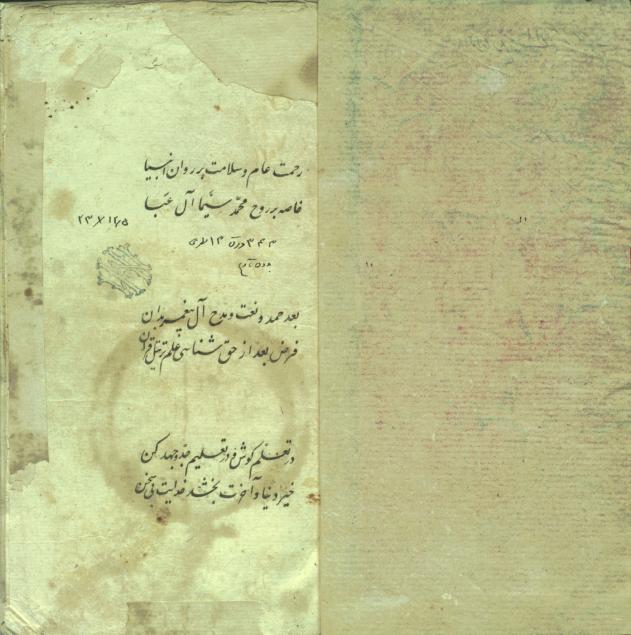 رحمت عام و سلامت بر روان انبیا
خاصه بر روح محمد سیما آل عبا
۲۳ ۱۲٫۵
۳۴۳ ورق ۱۳ سطری
بعد حمد و نعت و مدح آل پیغمبر بدان
فرض بعد از حق شناسی علم ترتیل قرآن
در تعلم کوش و در تعلیم جد و جهد کن
خیر دنیا و آخرت بخشد خدایت بی سخن